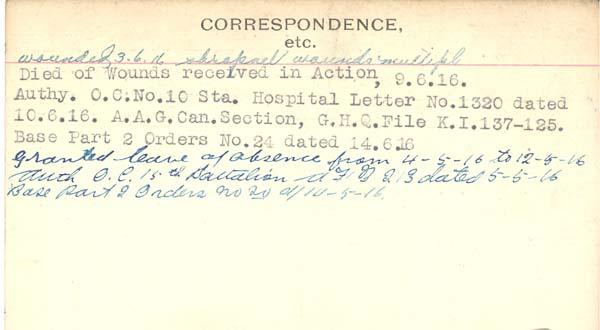 CORRESPONDENCE,
etc.
wounded 3.6.16 shrapnel wounds multiple
Died of Wounds received in Action, 9.6.16.
Authy. O.C.No.10 Sta. Hospital Letter No.1320 dated
10.6.16. A.A.G.Can.Section, G.H.Q.File K.I.137-125.
Base Part 2 Orders No.24 dated 14.6.16
Granted leave of absence from 4-5-16 to 12-5-16
Auth O.C. 15th Battalion A.F. B 213 dated 5-5-16
Base Part 2 Orders No 20 d/14-5-16.